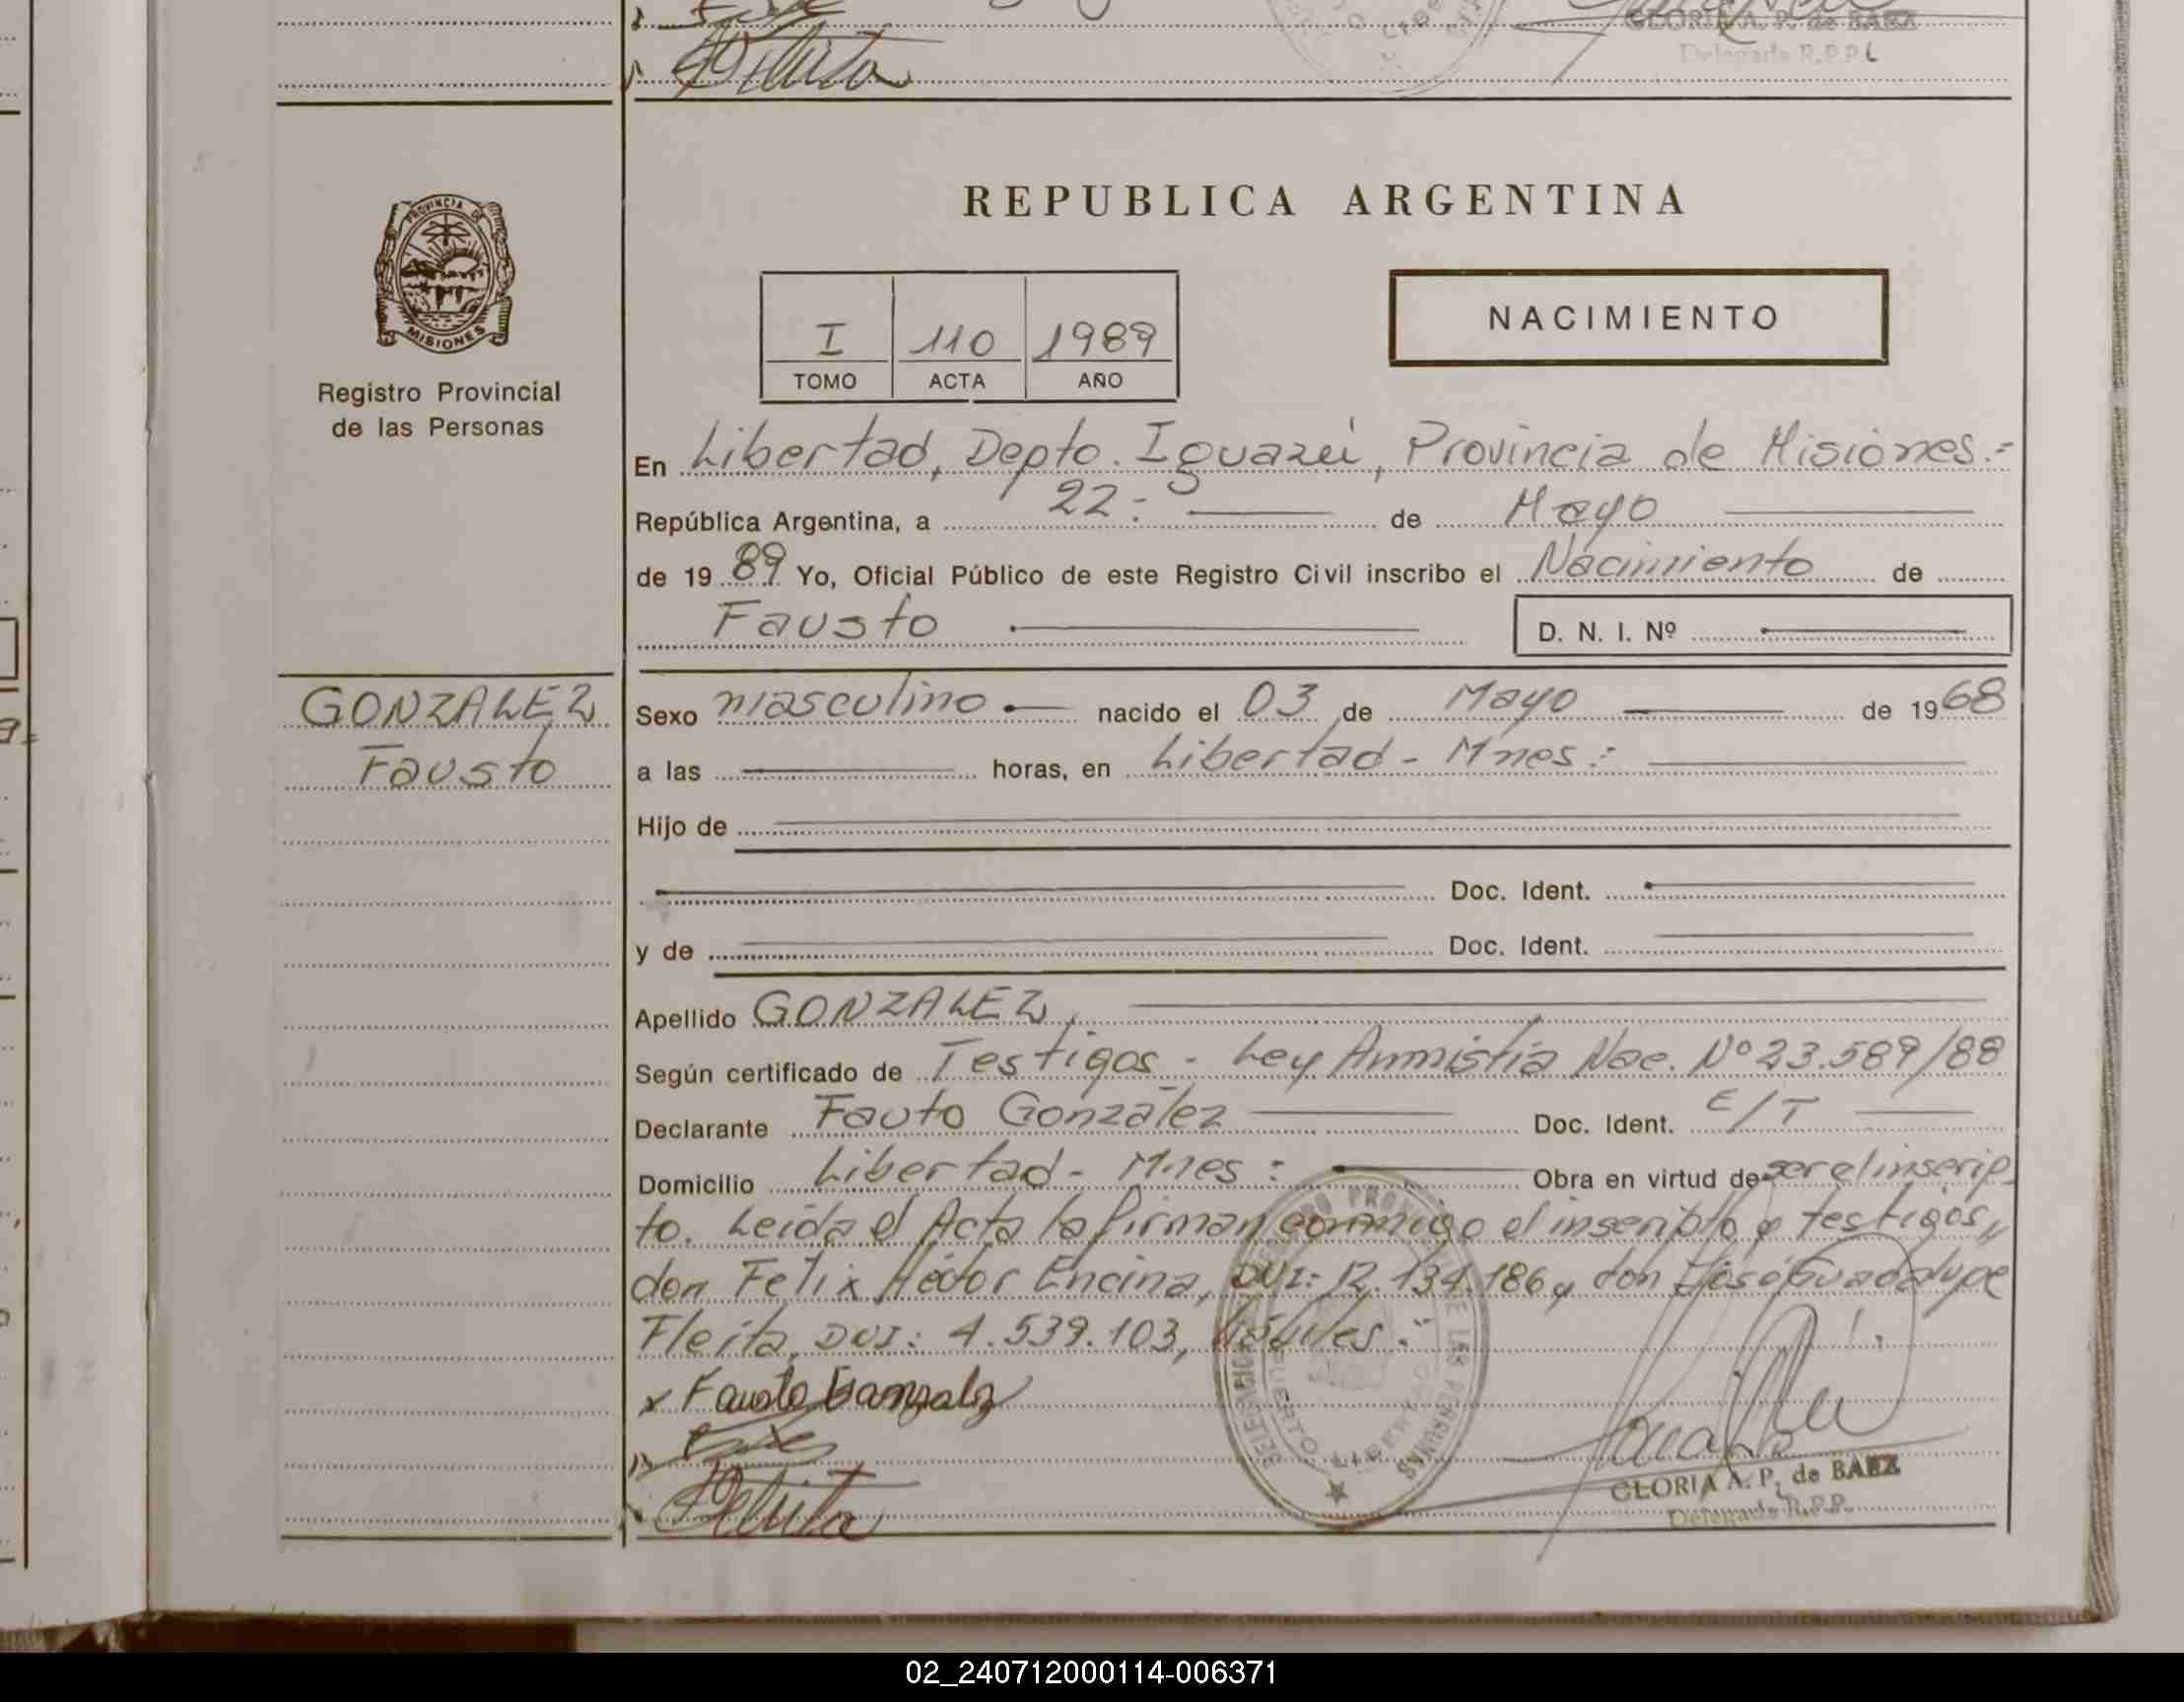 GLORIA A. P. de BAEZ
Delegada R.P.P.
PROVINCIA DE
MISIONES
Registro Provincial
de las Personas
GONZALEZ
Fausto
REPUBLICA ARGENTINA
I 110 1989
TOMO ACTA AÑO
NACIMIENTO
En Libertad, Depto. Iguazú, Provincia de Misiones.=
República Argentina, a 22=— de Mayo
de 1989 Yo, Oficial Público de este Registro Civil inscribo el Nacimiento de
Fausto
D. N. I. Nº
Sexo masculino nacido el 03 de Mayo de 1968
a las horas, en Libertad - Mnes:
Hijo de
Doc. Ident.
y de Doc. Ident.
Apellido GONZALEZ,
Según certificado de Testigos - Ley Anmistia Nac. Nº 23.589/88
Declarante Fauto González Doc. Ident. E/T
Domicilio Libertad - Mnes: Obra en virtud de ser el inscrip
to. Leída el Acta la firman conmigo el inscripto y testigos,
don Felix Héctor Encina, DNI: 12.134.186 y don José Guadalupe
Fleita, DNI: 4.539.103, hábiles.
x Fausto Gonzalez
DELEGACION
PUERTO LIBERTAD
GLORIA A. P. de BAEZ
Delegada R.P.P.
02_240712000114-006371